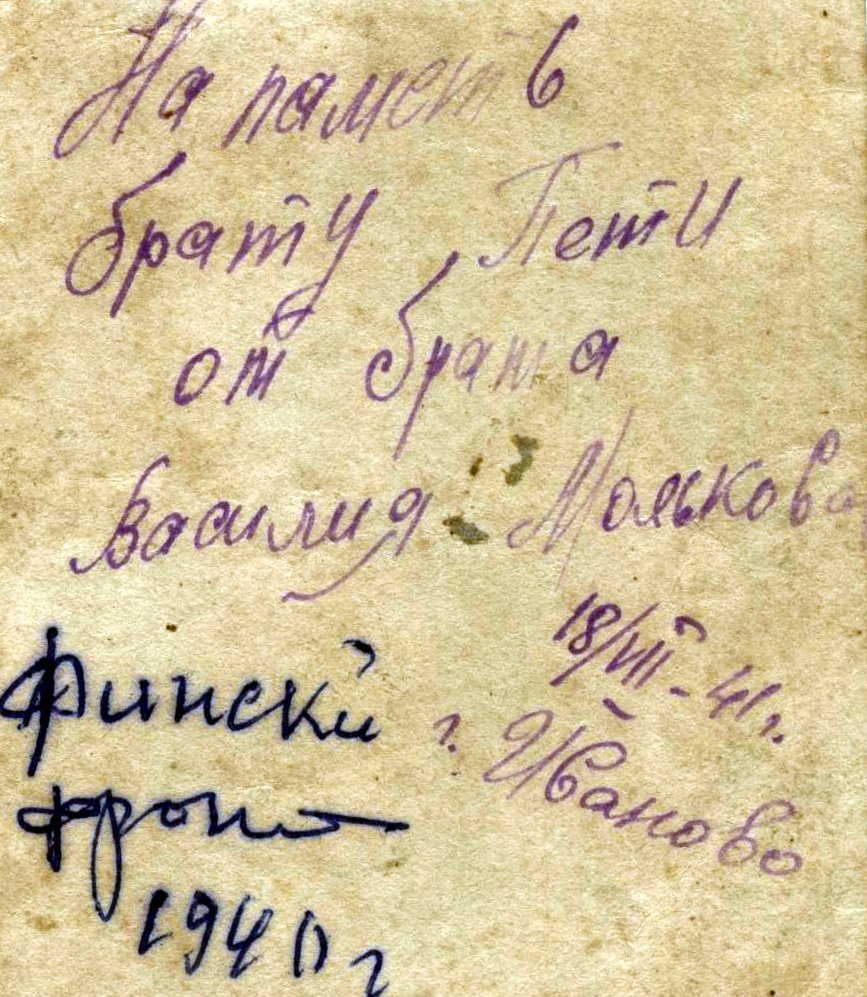 На паметь
брату Пети
от брата
Василия Молькова
18/VIII-41г.
г. Иваново
Финский
фронт
1940г